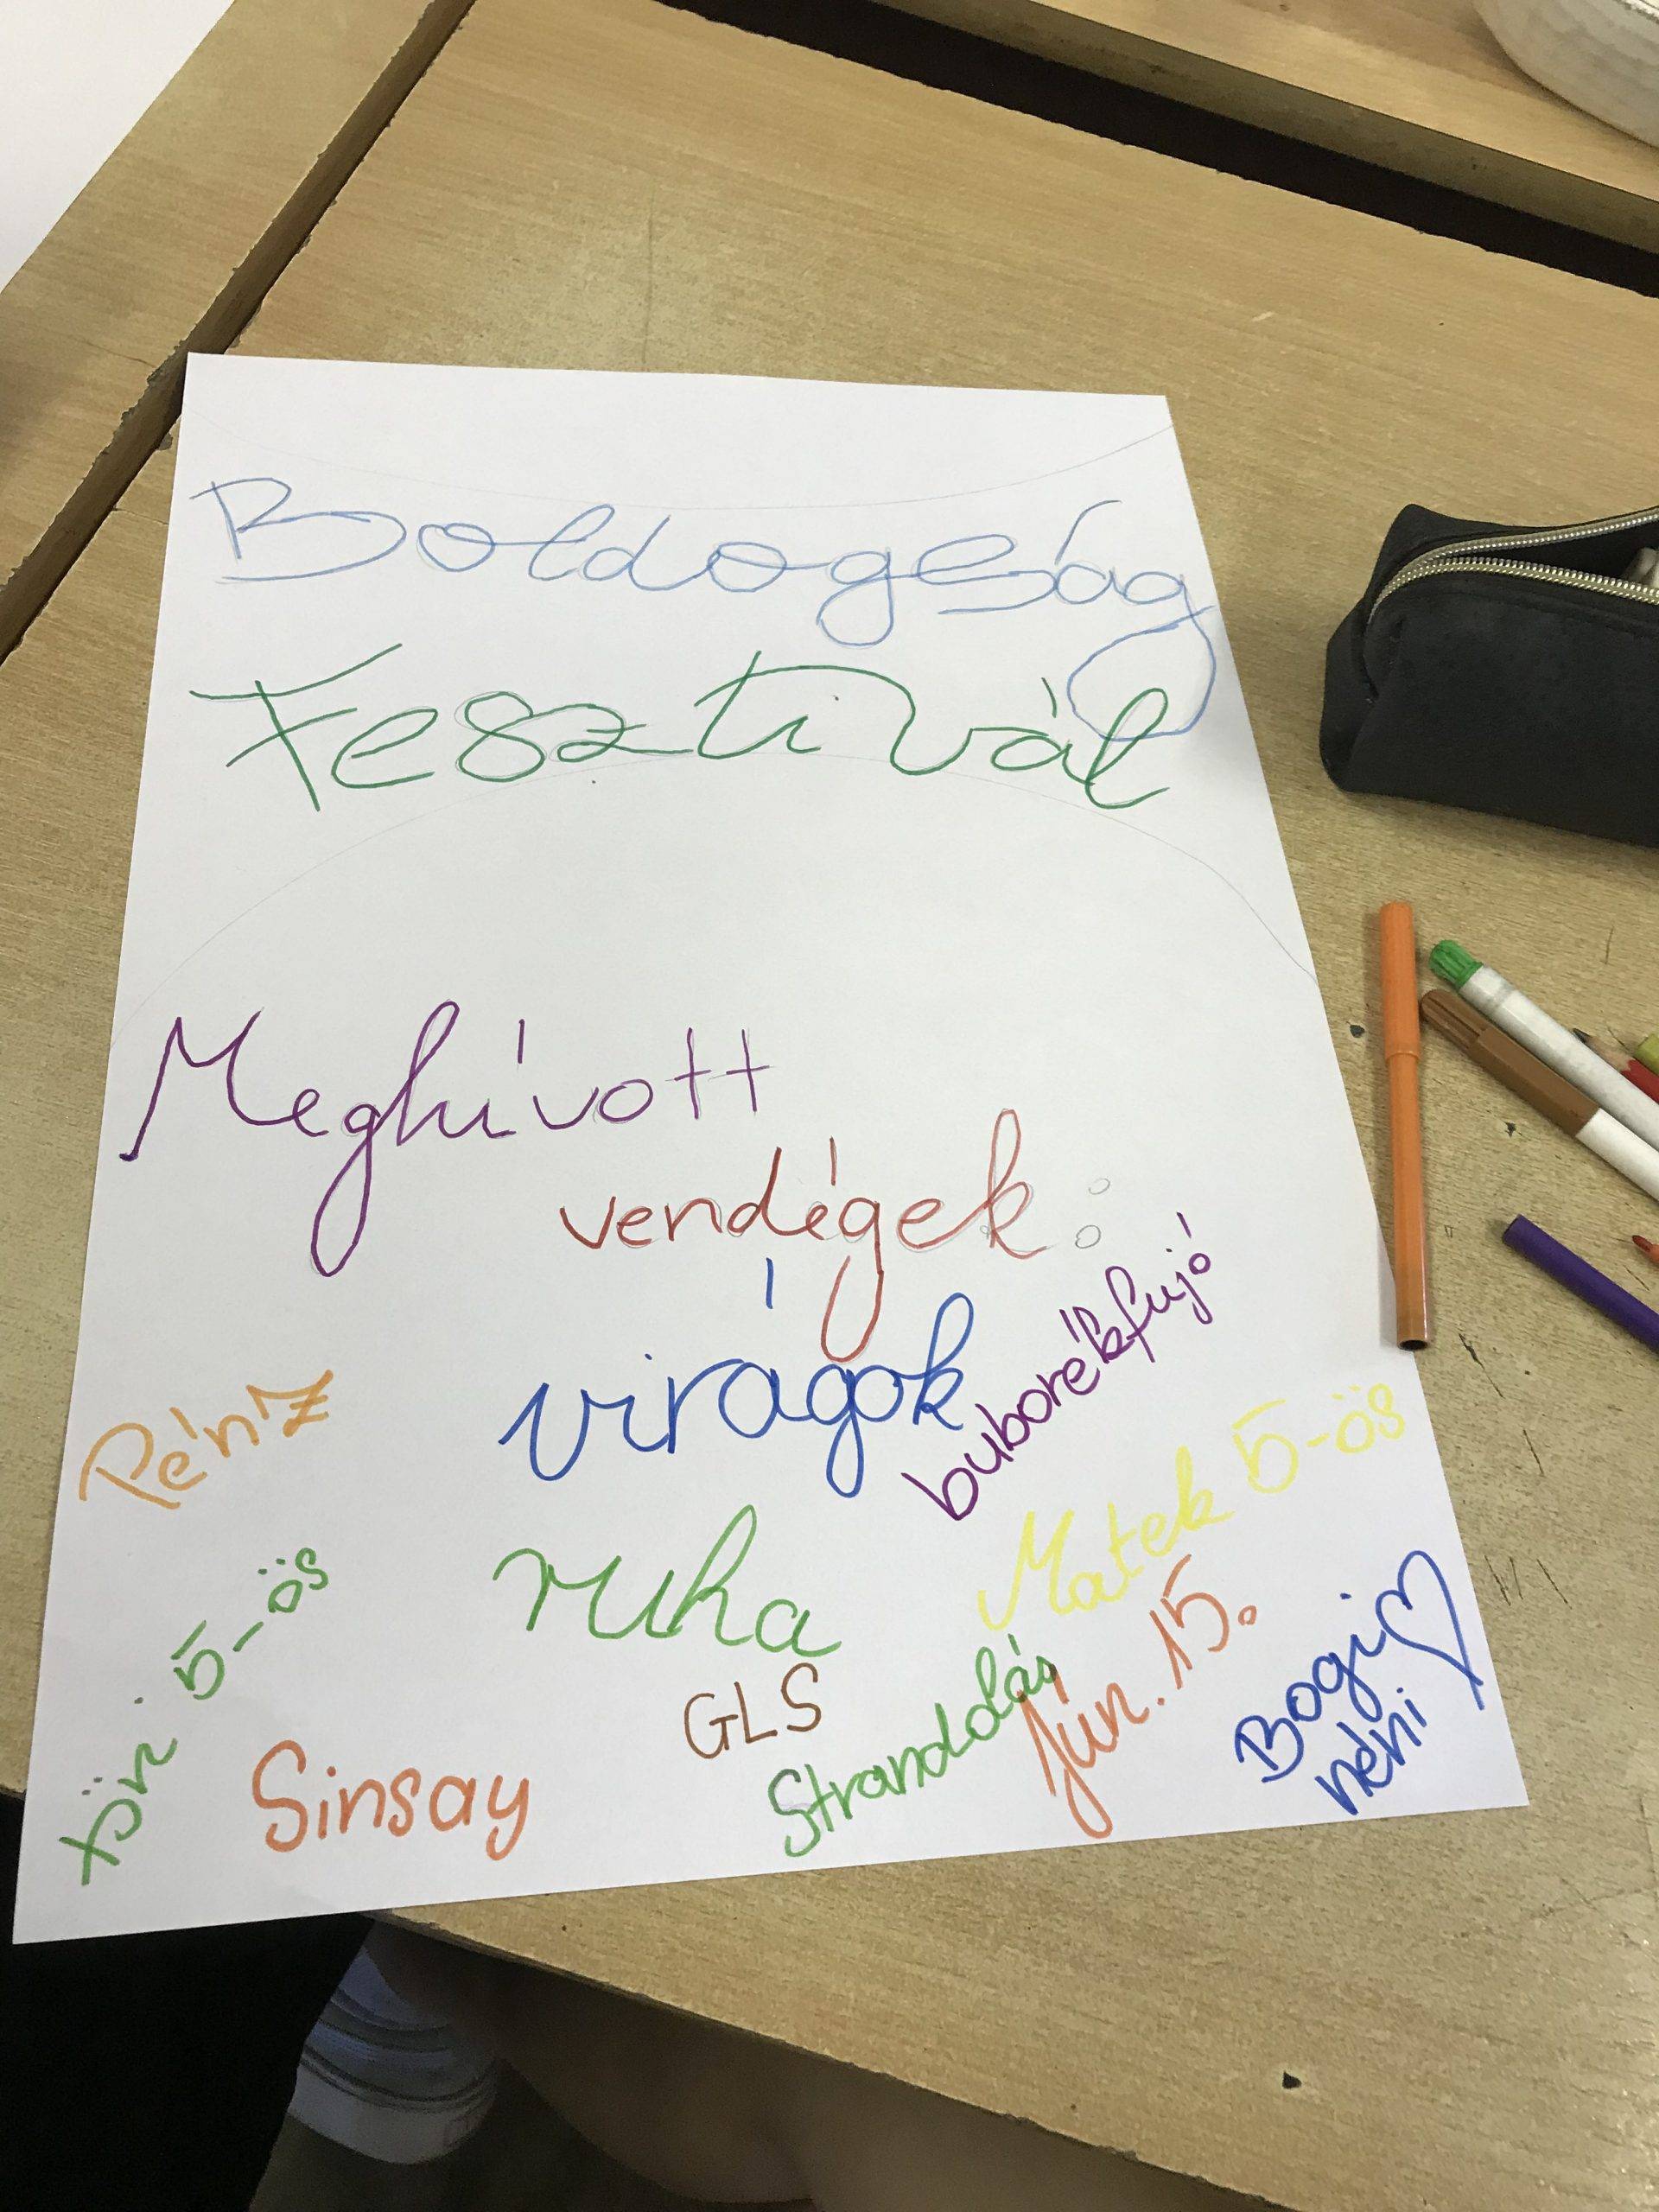 Boldogság
Fesztivál
Meghívott
vendégek:
virágok
buborékfújó
Pénz
Matek 5-ös
ruha
Köri 5-ös
GLS
Strandolás
Jún. 15.
Bogi
néni
Sinsay